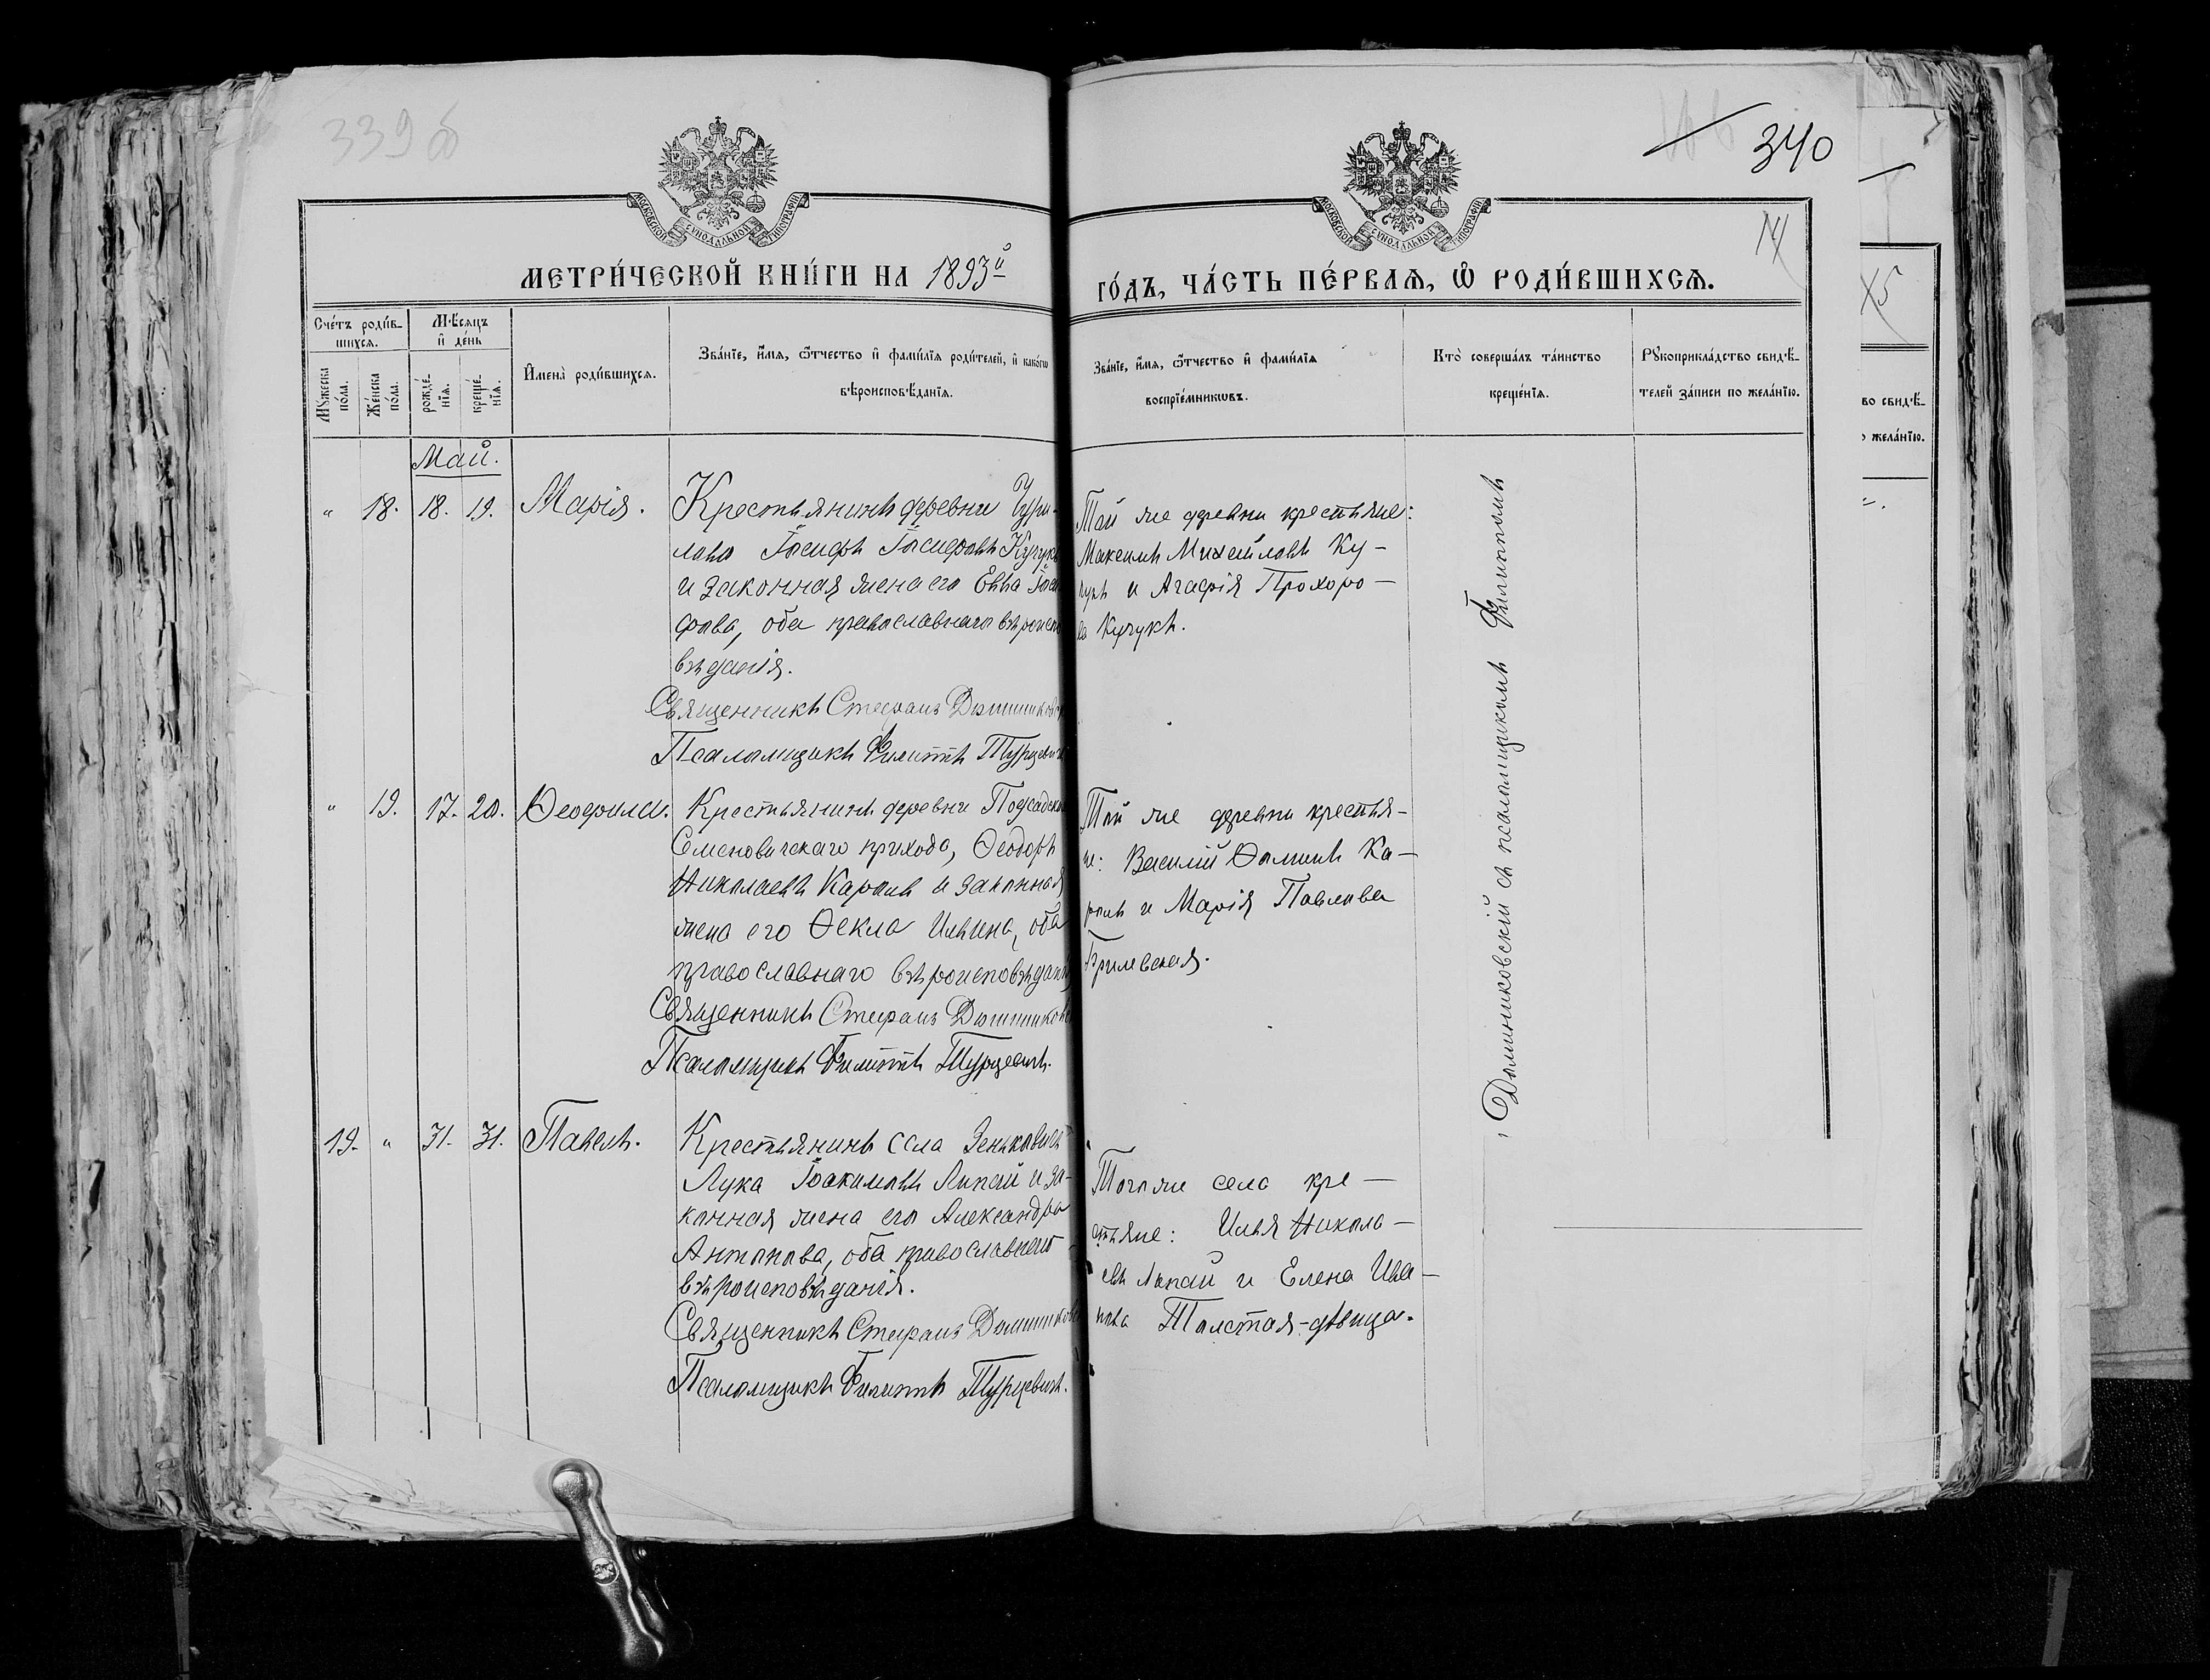 339 б
340
14
МОСКОВСКОЙ СУНОДАЛЬНОЙ ТИПОГРАФІИ
МОСКОВСКОЙ СУНОДАЛЬНОЙ ТИПОГРАФІИ
МЕТРИ́ЧЕСКОЙ КНИ́ГИ НА 1893й
ГО́ДЪ, ЧА́СТЬ ПЕ́РВАЯ, Ѡ РОДИ́ВШИХСЯ.
Сче́тъ роди́в-
шихся.
Мѣ́сяцъ
и де́нь
Му́жеска
по́ла.
Же́нска
по́ла.
рожде́-
нія.
креще́-
нія.
Имена̀ роди́вшихся.
Зва́ніе, и́мя, ѻ҆́тчество и фами́лія роди́телей, и како́гѡ
вѣроисповѣ́данія.
Зва́ніе, и́мя, ѻ҆́тчество и фами́лія
воспріе́мниковъ.
Кто̀ соверша́лъ та́инство
креще́нія.
Рукоприкла́дство свидѣ́-
телей за́писи по жела́нію.
во свидѣ́-
жела́нію.
15
Май.
" 18. 18. 19. Марія.
Крестьянинъ деревни Чури-
лово Іосифъ Іосифовъ Кучукъ
и законная жена его Евва Іоси
фова, оба православнаго вѣроиспо
вѣданія.
Священникъ Стефанъ Доминиковск
Псаломщикъ Филиппъ Турцевичъ
Той же деревни крестьяне:
Максимъ Михайловъ Ку-
чукъ и Агафія Прохоро-
ва Кучукъ.
" 19. 17. 20. Ѳеофила.
Крестьянинъ деревни Подсадск
Семеновичскаго прихода, Ѳеодоръ
Николаевъ Кароль и законная
жена его Ѳекла Ильина, оба
православнаго вѣроисповѣдан
Священникъ Стефанъ Домиников
Псаломщикъ Филиппъ Турцевичъ.
Той же деревни крестья-
не: Василій Ѳоминъ Ка-
роль и Марія Павлова
Брилевская.
19. " 31. 31. Павелъ.
Крестьянинъ села Зеньковичъ
Лука Іоакимовъ Лапай и за-
конная жена его Александра
Антонова, оба православнаго
вѣроисповѣданія.
Священникъ Стефанъ Домиников
Псаломщикъ Филиппъ Турцевичъ.
Того же села кре-
стьяне: Илья Никола-
евъ Лапай и Елена Ива-
нова Толстая-дѣвица.
Доминиковскій съ псаломщикомъ Филиппомъ